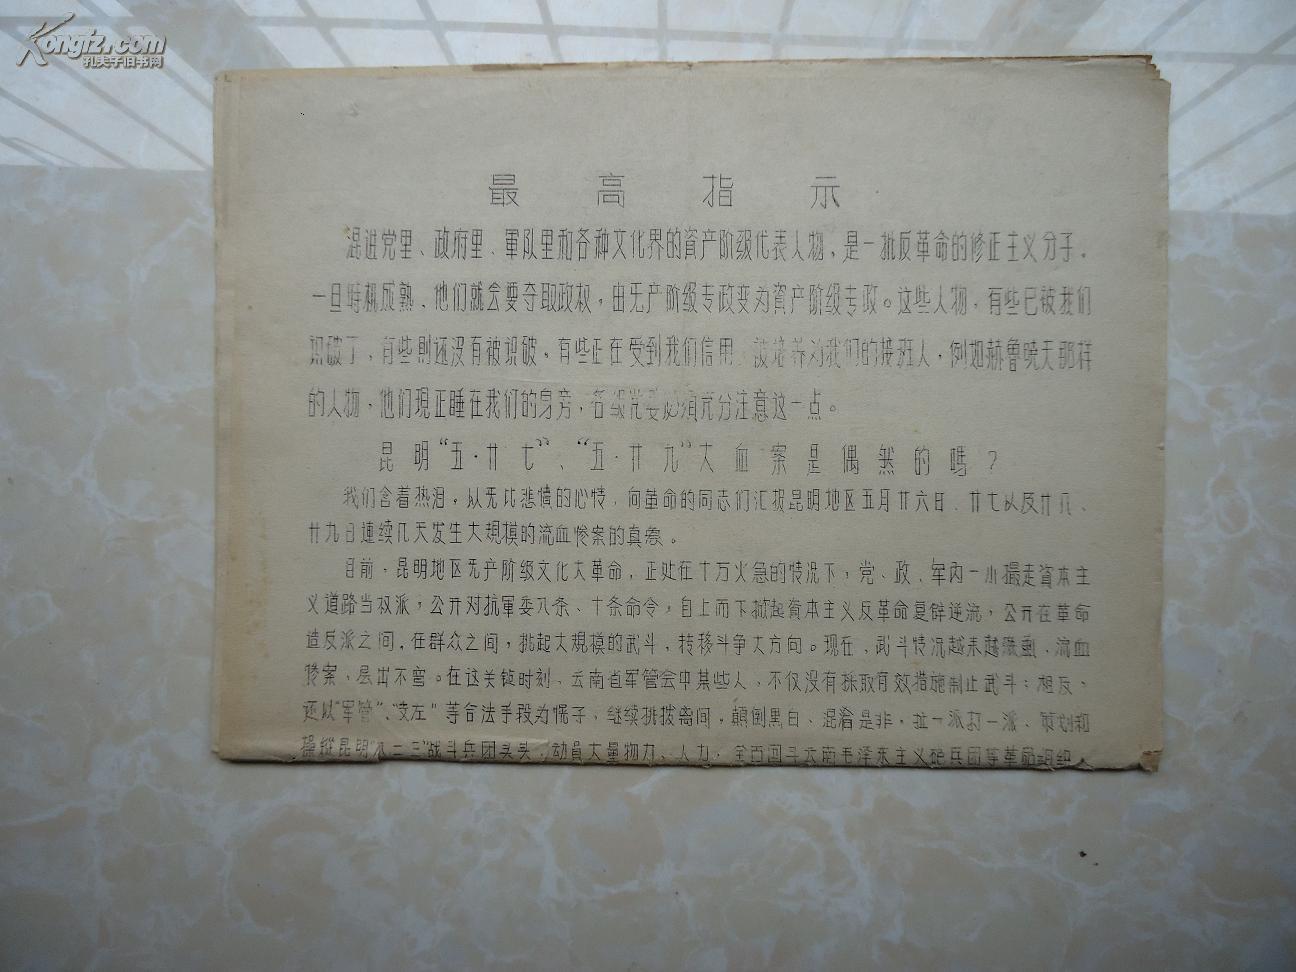 Kongfz.com
孔夫子旧书网
最高指示
混进党里、政府里、軍队里和各种文化界的資产阶级代表人物，是一批反革命的修正主义分子，
一旦时机成熟，他们就会要夺取政权，由无产阶级专政变为資产阶级专政。这些人物，有些已被我们
识破了，有些則还没有被识破。有些正在受到我们信用，被培养为我们的接班人，例如赫魯晓夫那样
的人物，他们現正睡在我们的身旁，各级党委必须充分注意这一点。
昆明“五·廿七”、“五·廿九”大血案是偶然的嗎？
我们含着热泪，以无比悲憤的心情，向革命的同志们汇报昆明地区五月廿六日、廿七以及廿八、
廿九日連续几天发生大規模的流血惨案的真象。
目前，昆明地区无产阶级文化大革命，正处在十万火急的情况下，党、政、军内一小撮走資本主
义道路当权派，公开对抗軍委八条、十条命令，自上而下掀起資本主义反革命复辟逆流，公开在革命
造反派之间，在群众之间，挑起大規模的武斗，转移斗争大方向。现在，武斗情况越来越激烈，流血
惨案，层出不窮。在这关键时刻，云南省軍管会中某些人，不仅没有採取有效措施制止武斗；相反，
还以“军管”、“支左”等合法手段为幌子，继续挑拨离间，顛倒黑白、混淆是非，拉一派打一派、策划和
操縱昆明“八二三”战斗兵团头头，动員大量物力、人力，全云南毛泽东主义炮兵团等革命组织